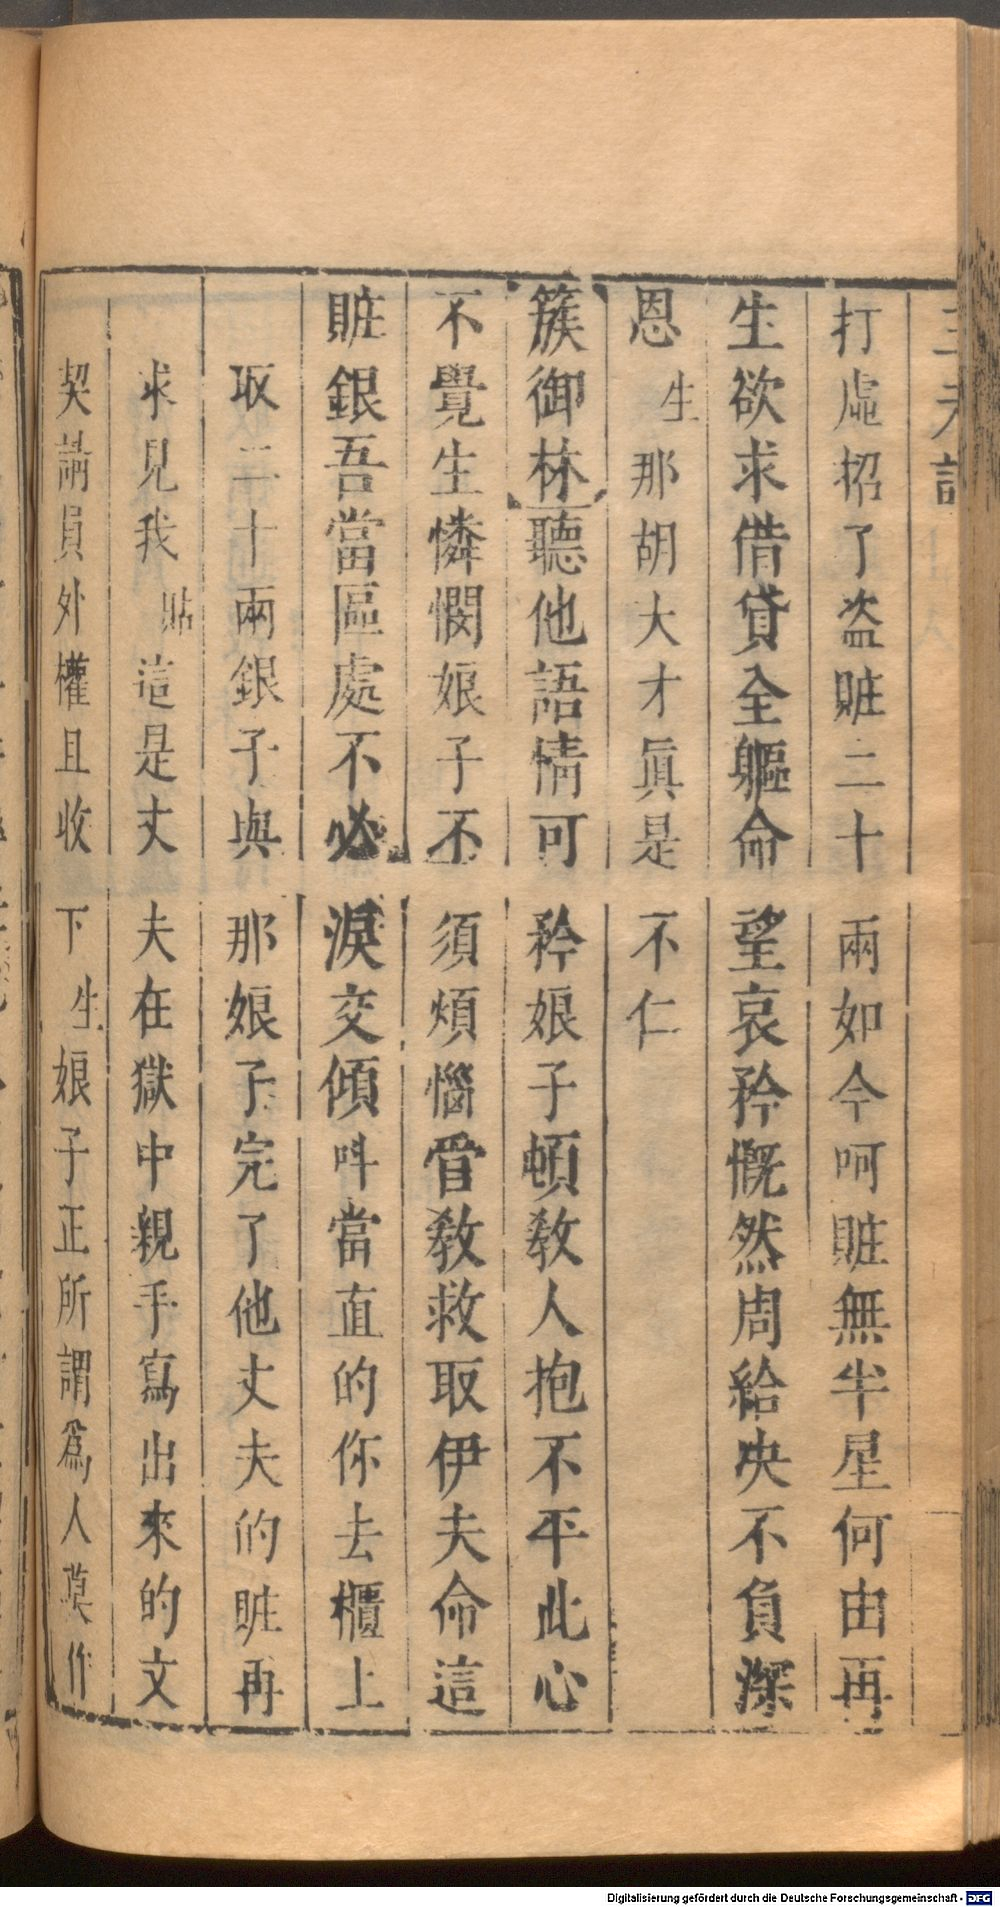 三元記
打虛招了盜賍二十兩如今呵賍無半星何由再
生欲求借貸全軀命望哀矜慨然周給决不負深
恩生那胡大才眞是不仁
簇御林聽他語情可矜娘子頓教人抱不平此心
不覺生憐憫娘子不須煩惱管教救取伊夫命這
賍銀吾當區處不必淚交傾呌當直的你去櫃上
取二十兩銀子與那娘子完了他丈夫的賍再
求見我貼這是丈夫在獄中親手寫出來的文
契請員外權且收下生娘子正所謂爲人莫作
Digitalisierung gefördert durch die Deutsche Forschungsgemeinschaft - DFG